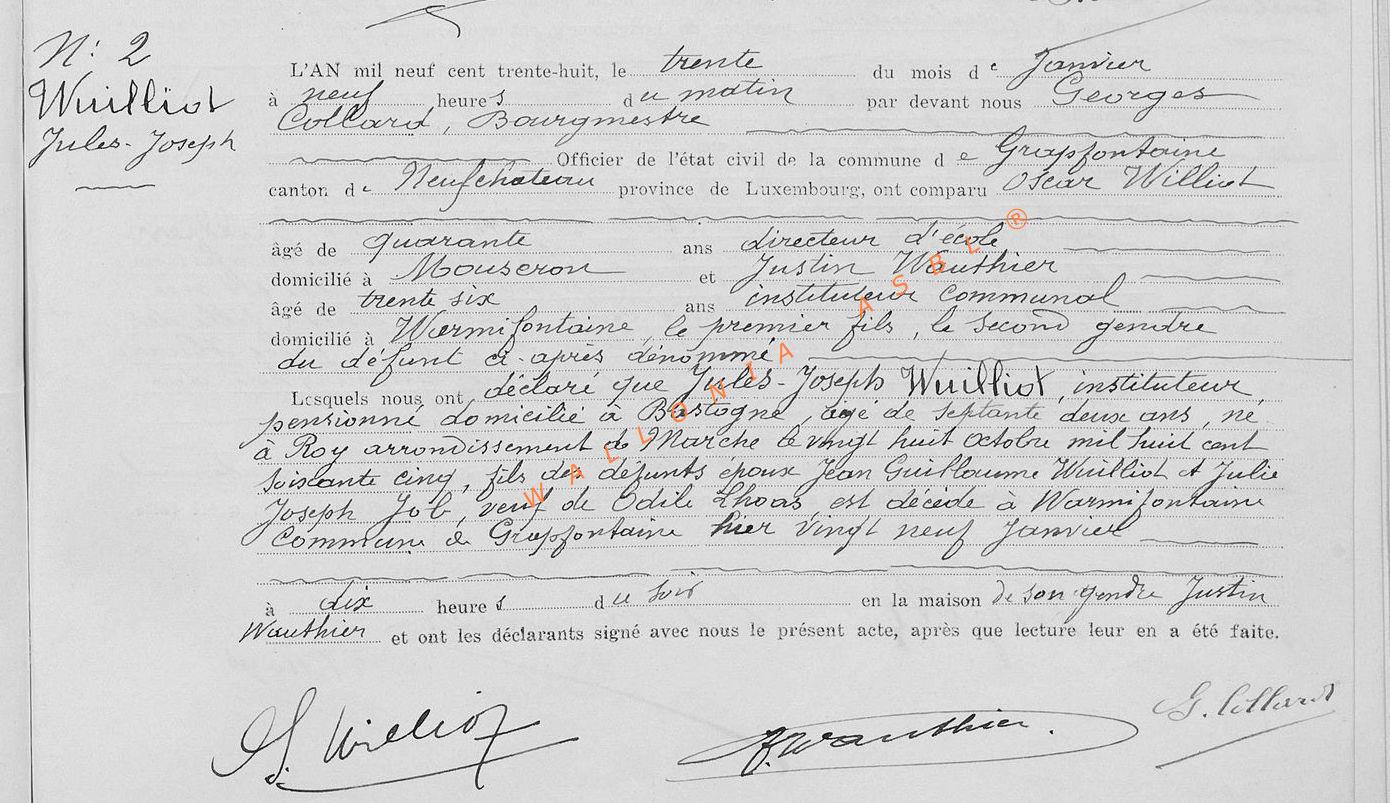 N: 2
Wuilliot
Jules-Joseph
L'AN mil neuf cent trente-huit, le trente du mois de Janvier
à neuf heures du matin par devant nous Georges
Collard, Bourgmestre
Officier de l'état civil de la commune de Grapfontaine
canton de Neufchateau province de Luxembourg, ont comparu Oscar Williot
âgé de quarante ans directeur d'école
domicilié à Mouscron et Justin Wauthier
âgé de trente six ans instituteur communal
domicilié à Warmifontaine, le premier fils, le second gendre
du défunt ci-après dénommé
Lesquels nous ont déclaré que Jules-Joseph Wuilliot, instituteur
pensionné domicilié à Bastogne, âgé de septante deux ans, né
à Roy arrondissement de Marche le vingt huit octobre mil huit cent
soixante cinq, fils des défunts époux Jean Guillaume Wuilliot et Julie
Joseph Job, veuf de Odile Lhoas, est décédé à Warmifontaine
Commune de Grapfontaine hier vingt neuf Janvier
à dix heures du soir en la maison de son gendre Justin
Wauthier et ont les déclarants signé avec nous le présent acte, après que lecture leur en a été faite.
WALLONIA ASBL ®
Williot
J. Wauthier.
G. Collard